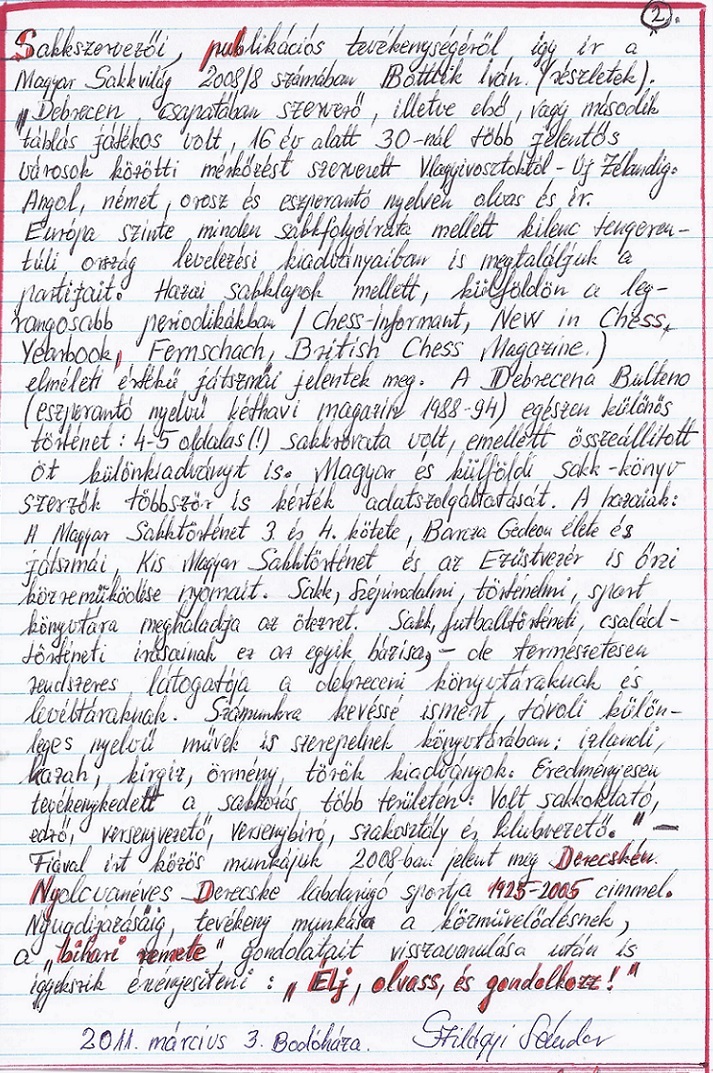 2.
Sakkszervezői, publikációs tevékenységéről így ír a
Magyar Sakkvilág 2008/8 számában Bottlik Iván. (részletek).
"Debrecen csapatában szervező, illetve első, vagy második
táblás játékos volt, 16 év alatt 30-nál több jelentős
városok közötti mérkőzést szervezett Vlagyivosztoktól - Új Zélandig.
Angol, német, orosz és eszperantó nyelven olvas és ír.
Európa szinte minden sakkfolyóirata mellett kilenc tengeren-
túli ország levelezési kiadványaiban is megtaláljuk a
partijait. Hazai sakklapok mellett, külföldön a leg-
rangosabb periodikákban /Chess-Informant, New in Chess,
Yearbook, Fernschach, British Chess Magazine.)
elméleti értékű játszmái jelentek meg. A Debrecena Bulteno
(eszperantó nyelvű kéthavi magazin 1988-94) egészen különös
történet: 4-5 oldalas(!) sakkrovata volt, emellett összeállított
öt különkiadványt is. Magyar és külföldi sakk-könyv
szerzők többször is kérték adatszolgáltatását. A hazaiak:
A Magyar Sakktörténet 3. és 4. kötete, Barcza Gedeon élete és
játszmái, Kis Magyar Sakktörténet és az Ezüstvezér is őrzi
közreműködése nyomait. Sakk, szépirodalmi, történelmi, sport
könyvtára meghaladja az ötezret. Sakk, futballtörténeti, család-
történeti írásainak ez az egyik bázisa, - de természetesen
rendszeres látogatója a debreceni könyvtáraknak és
levéltáraknak. Számunkra kevéssé ismert, távoli külön-
leges nyelvű művek is szerepelnek könyvtárában: izlandi,
kazah, kirgiz, örmény, török kiadványok. Eredményesen
tevékenykedett a sakkozás több területén: Volt sakkoktató,
edző, versenyvezető, versenybíró, szakosztály és klubvezető." -
Fiával írt közös munkájuk 2008-ban jelent meg Derecskén.
Nyolcvanéves Derecske labdarúgó sportja 1925-2005 címmel.
Nyugdíjazásáig, tevékeny munkása a közművelődésnek,
a "bihari remete" gondolatait visszavonulása után is
igyekszik érvényesíteni: "Élj, olvass, és gondolkozz!"
2011. március 3. Bodóháza. Szilágyi Sándor